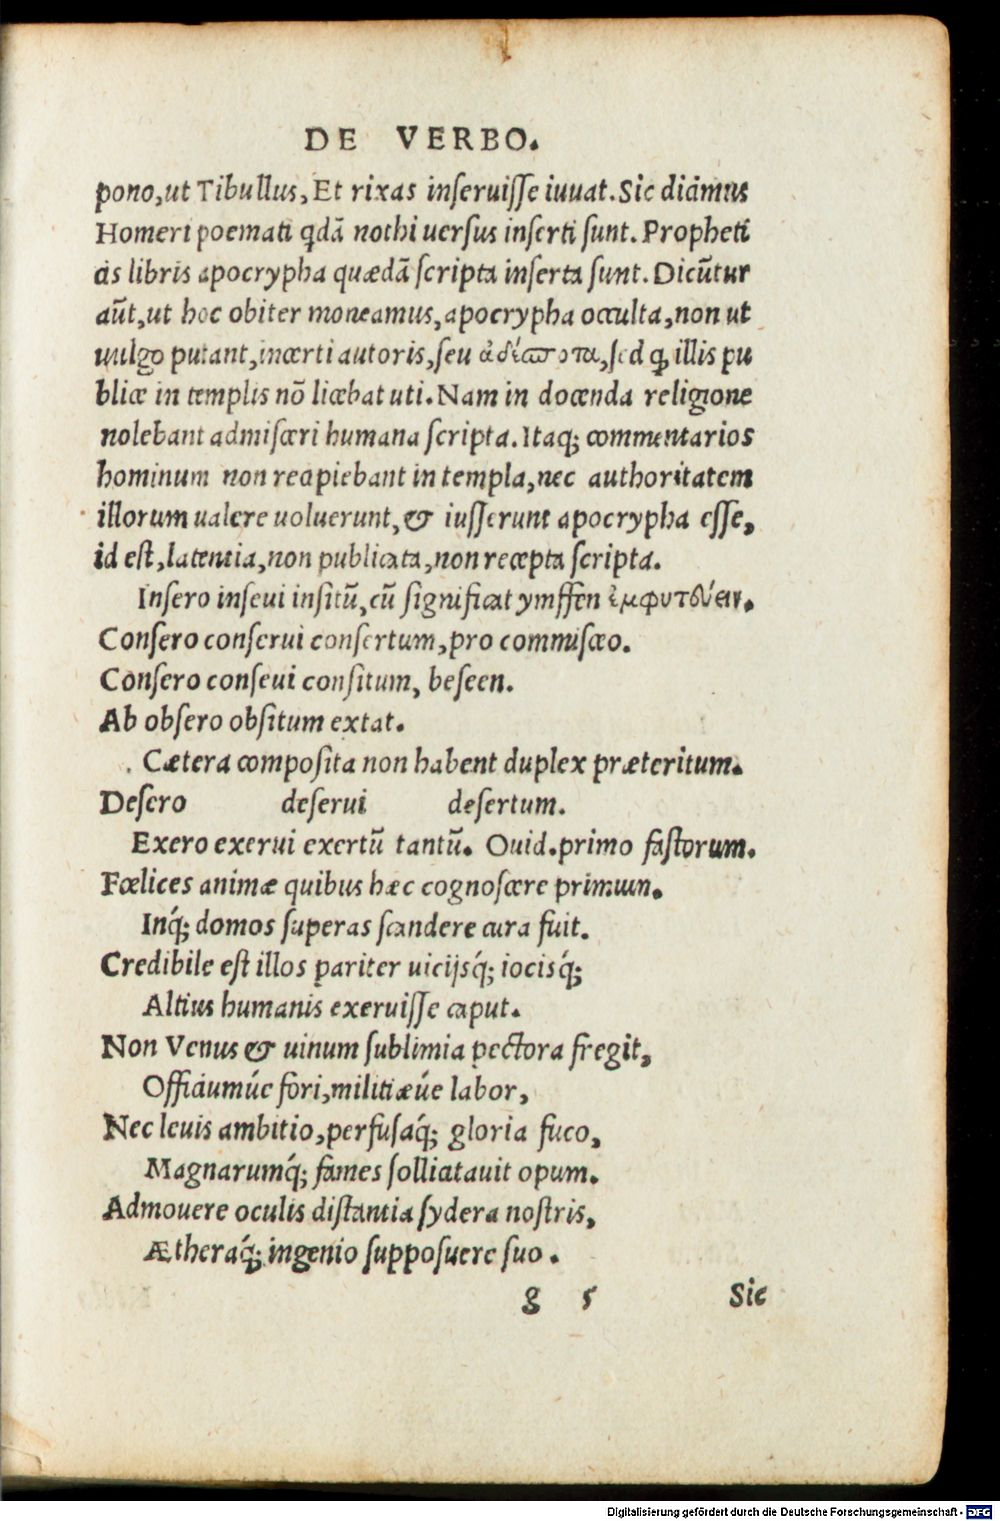 DE VERBO.
pono, ut Tibullus, Et rixas inseruisse iuuat. Sic dicimus
Homeri poemati qdã nothi uersus inserti sunt. Propheti
cis libris apocrypha quædã scripta inserta sunt. Dicũtur
aũt, ut hoc obiter moneamus, apocrypha occulta, non ut
uulgo putant, incerti autoris, seu ἀδέσποτα, sed ꝙ illis pu
blice in templis nõ licebat uti. Nam in docenda religione
nolebant admisceri humana scripta. Itaq; commentarios
hominum non recipiebant in templa, nec authoritatem
illorum ualere uoluerunt, & iusserunt apocrypha esse,
id est, latentia, non publicata, non recepta scripta.
Insero inseui insitũ, cũ significat ymffen ἐμφυτεύειν.
Consero conserui consertum, pro commisceo.
Consero conseui consitum, beseen.
Ab obsero obsitum extat.
Cætera composita non habent duplex præteritum.
Desero deserui desertum.
Exero exerui exertũ tantũ. Ouid. primo fastorum.
Fœlices animæ quibus hæc cognoscere primum.
Inq́; domos superas scandere cura fuit.
Credibile est illos pariter uicijsq́; iocisq́;
Altius humanis exeruisse caput.
Non Venus & uinum sublimia pectora fregit,
Officiumúe fori, militiæúe labor,
Nec leuis ambitio, perfusaq́; gloria fuco,
Magnarumq́; fames sollicitauit opum.
Admouere oculis distantia sydera nostris,
Ætheraq́; ingenio supposuere suo.
g 5 Sic
Digitalisierung gefördert durch die Deutsche Forschungsgemeinschaft - DFG